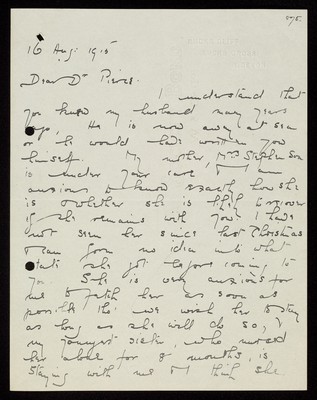 16 Aug. 1915
Dear Dr Pierce.
I understand that
you knew my husband many years
ago, He is now away at sea
or he would have written you
himself. My mother, Mrs Stephenson
is under your care & I am
anxious to know exactly how she
is & whether she is likely to recover
if she remains with you? I have
not seen her since last Christmas
& can form no idea into what
state she got before coming to
you. She is very anxious for
me to fetch her as soon as
possible, tho' we wish her to stay
as long as she will do so, &
my youngest sister, who nursed
her alone for 8 months, is
staying with me & I think she